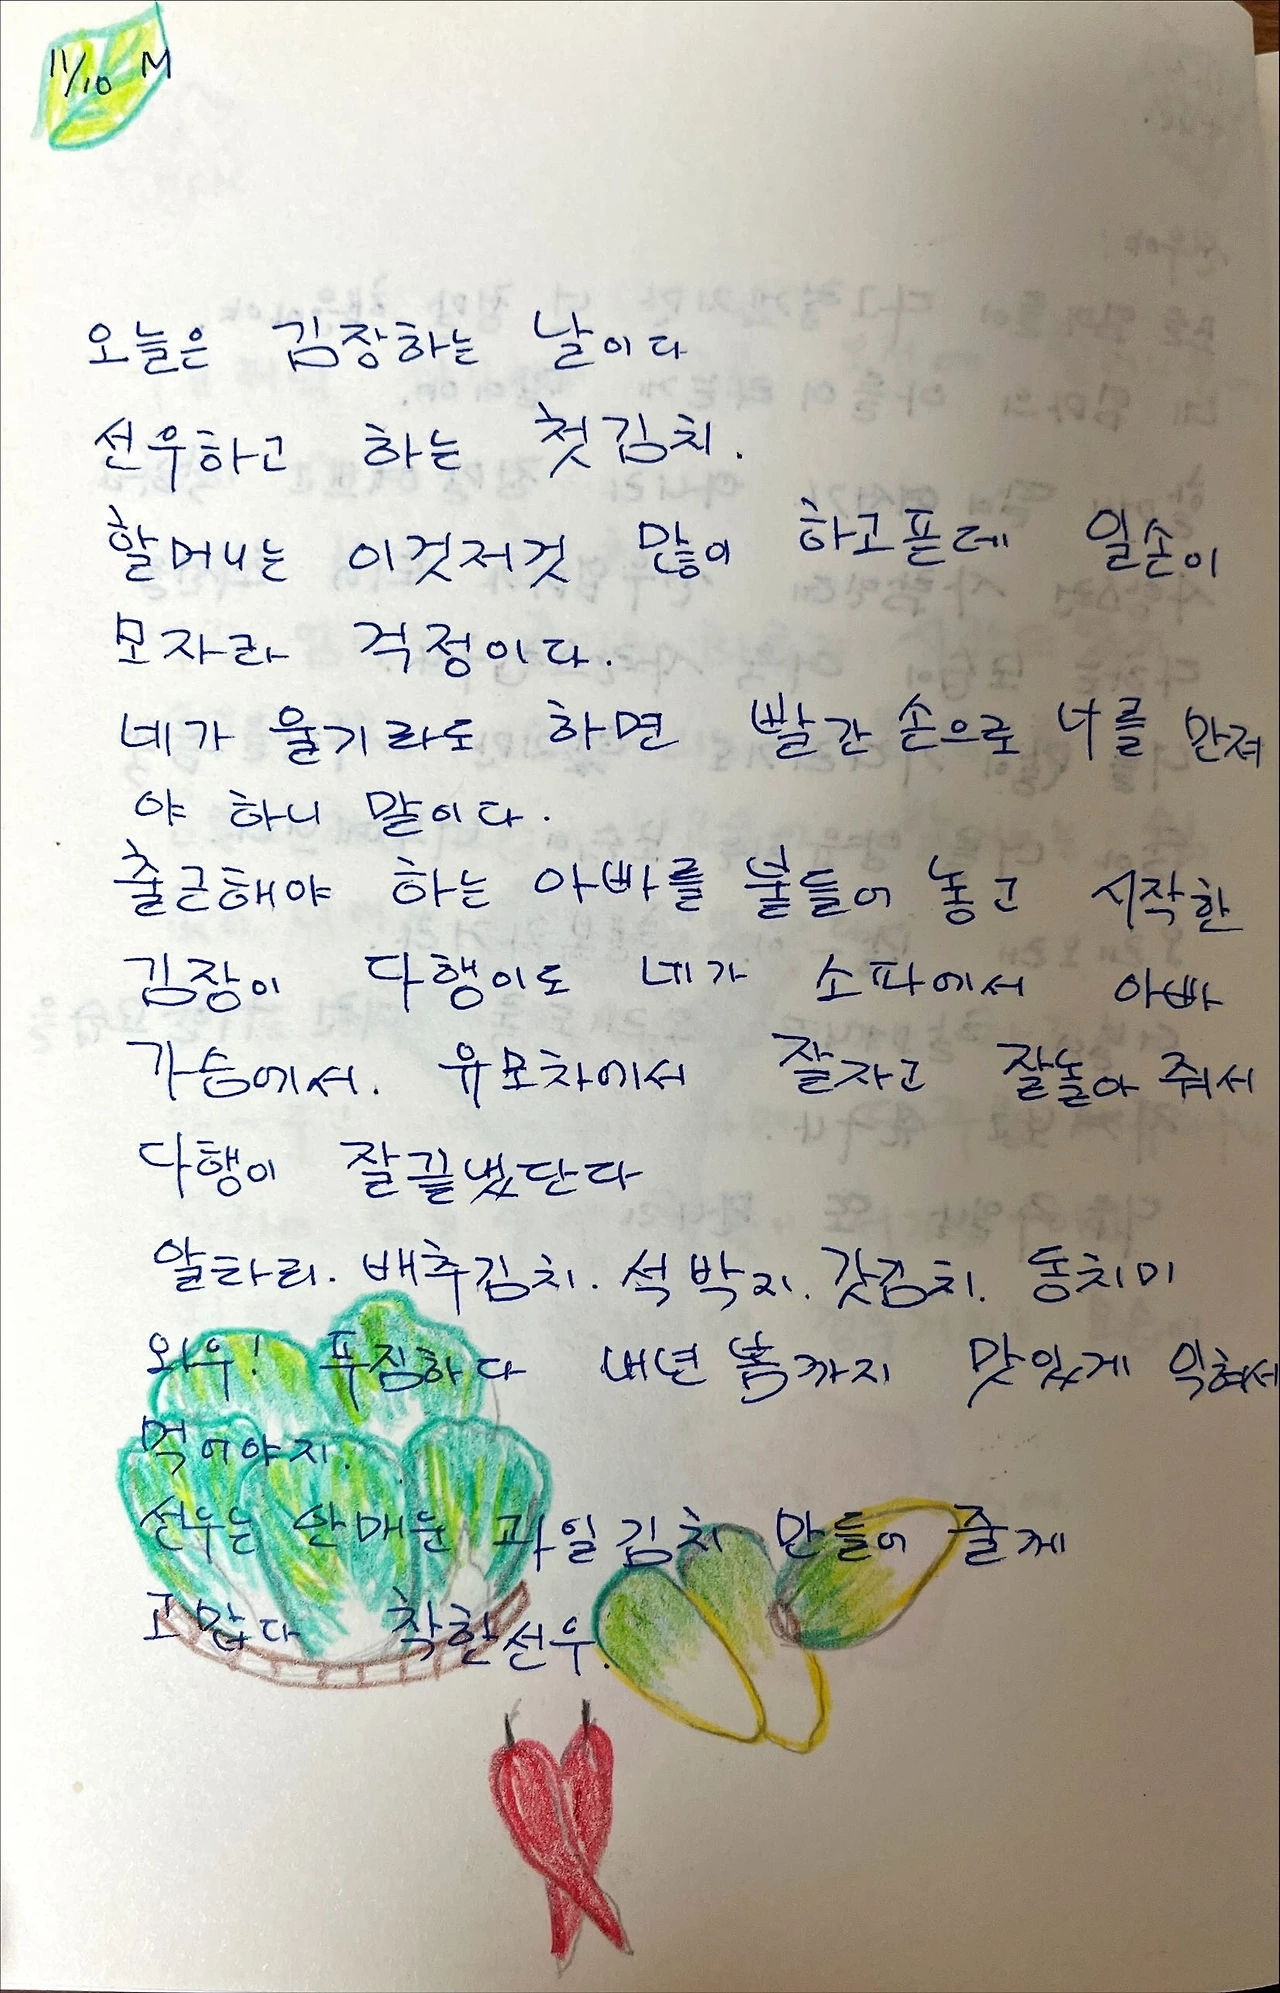 11/10 M
오늘은 김장하는 날이다
선우하고 하는 첫김치.
할머니는 이것저것 많이 하고픈데 일손이
모자라 걱정이다.
네가 울기라도 하면 빨간 손으로 너를 만져
야 하니 말이다.
출근해야 하는 아빠를 붙들어 놓고 시작한
김장이 다행이도 네가 소파에서 아빠
가슴에서. 유모차에서 잘자고 잘놀아 줘서
다행이 잘끝냈단다
알타리. 배추김치. 석박지. 갓김치. 동치미
와우! 푸짐하다 내년 봄까지 맛있게 익혀서
먹어야지.
선우는 안매운 과일김치 만들어 줄께
고맙다 착한선우.